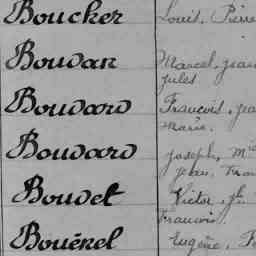 Boucker Louis, Pierre
Boudan Marcel, Jean
Jules
Boudard François, Jea
Marie.
Boudard Joseph, M
Jean, Fran
Boudet Victor, Jh
Francois.
Bouënel Eugène,